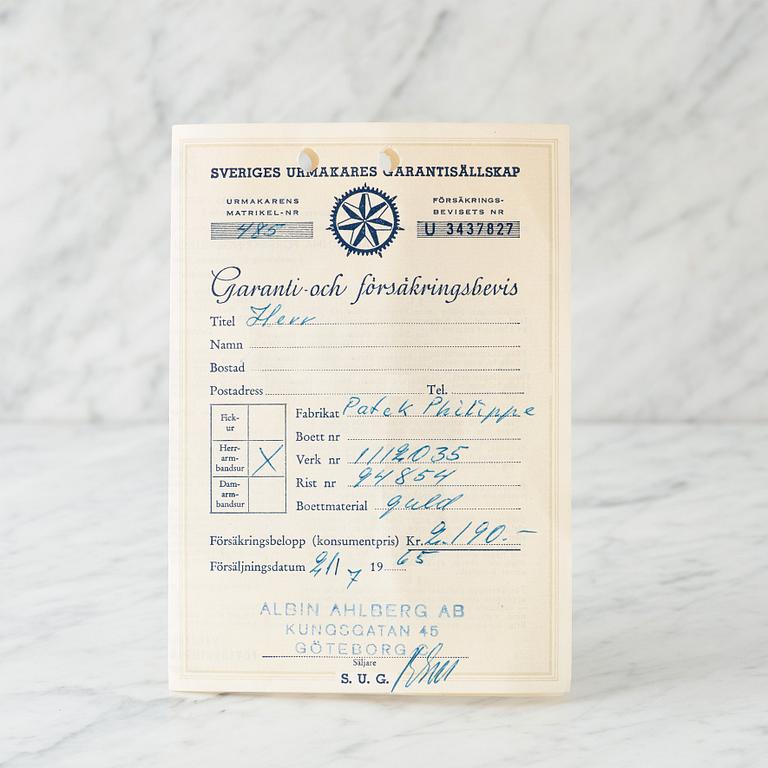 SVERIGES URMAKARES GARANTISÄLLSKAP
URMAKARENS
MATRIKEL-NR
485
FÖRSÄKRINGS-
BEVISETS NR
U 3437827
Garanti- och försäkringsbevis
Titel Herr
Namn
Bostad
Postadress Tel.
Fick-
ur
Herr-
arm-
bandsur
X
Dam-
arm-
bandsur
Fabrikat Patek Philippe
Boett nr
Verk nr 1112035
Rist nr 94854
Boettmaterial guld
Försäkringsbelopp (konsumentpris) Kr. 2.190.-
Försäljningsdatum 21/7 19 65
ALBIN AHLBERG AB
KUNGSGATAN 45
GÖTEBORG C
Säljare
S. U. G.